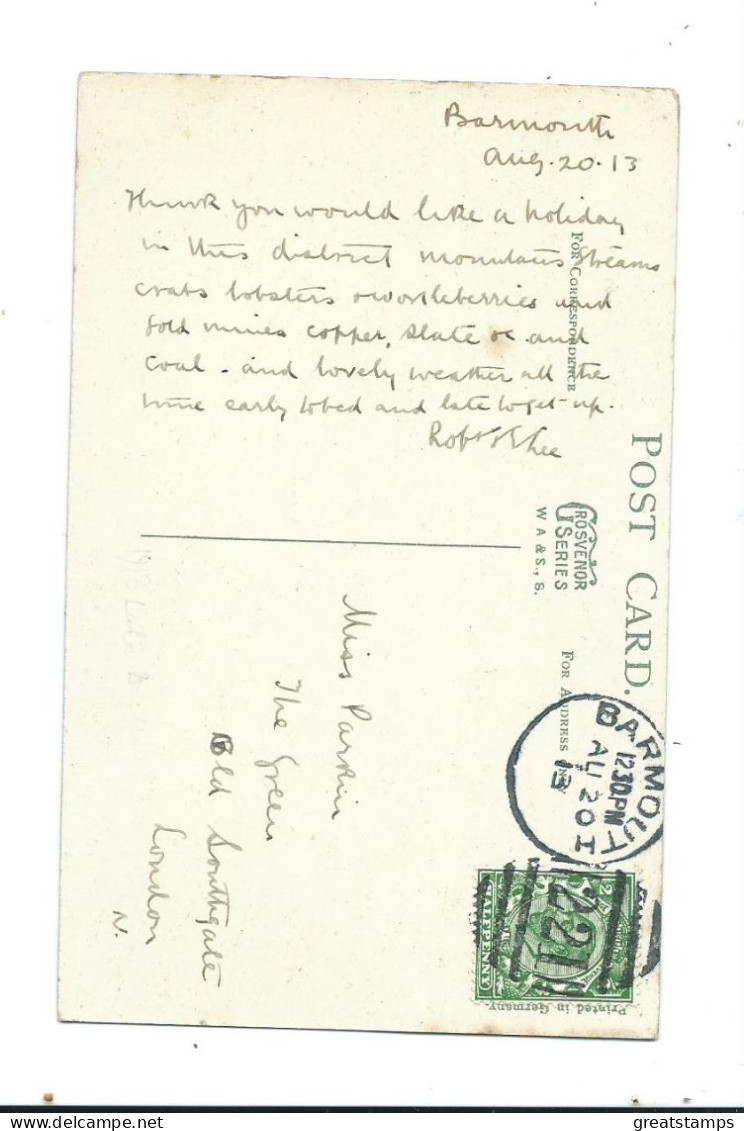 Barmouth
Aug. 20. 13
Think you would like a holiday
in this district mountains streams
crabs lobsters & wortleberries and
gold mines copper, slate &c and
coal - and lovely weather all the
time early to bed and late to get up.
Robt
FOR CORRESPONDENCE
POST CARD.
GROSVENOR
SERIES
W A & S., S.
FOR ADDRESS ONLY
Miss Parkin
The Green
Old Southgate
London
N.
BARMOUTH
12 30 PM
AU 20
13
HALFPENNY
Printed in Germany.
delcampe.net
greatstamps